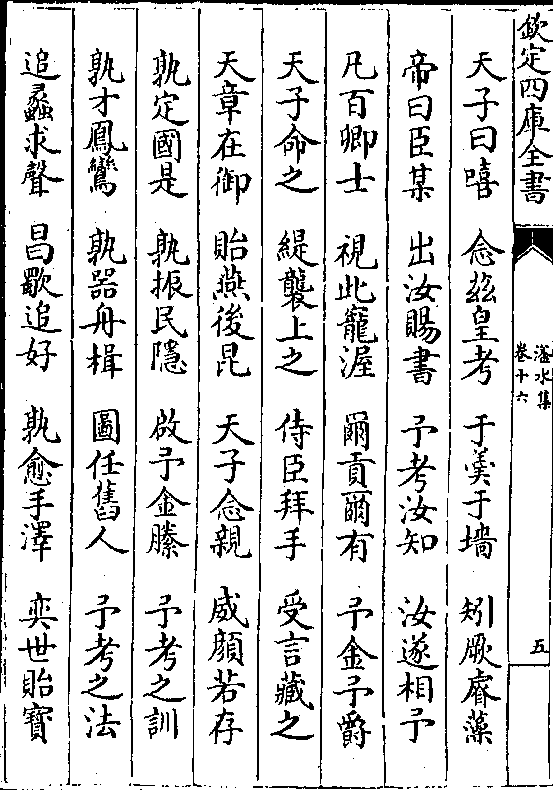 欽定四庫全書
滏水集
卷十六
五
天子曰嘻　念兹皇考　于羹于墻　矧厥睿藻
帝曰臣某　出汝賜書　予考汝知　汝遂相予
凡百卿士　視此寵渥　爾貢爾有　予金予爵
天子命之　緹襲上之　侍臣拜手　受言藏之
天章在御　貽燕後昆　天子念親　威顔若存
孰定國是　孰振民隱　啟予金縢　予考之訓
孰才鳳鸞　孰器舟楫　圖任舊人　予考之法
追蠡求聲　昌歜追好　孰愈手澤　奕世貽寶